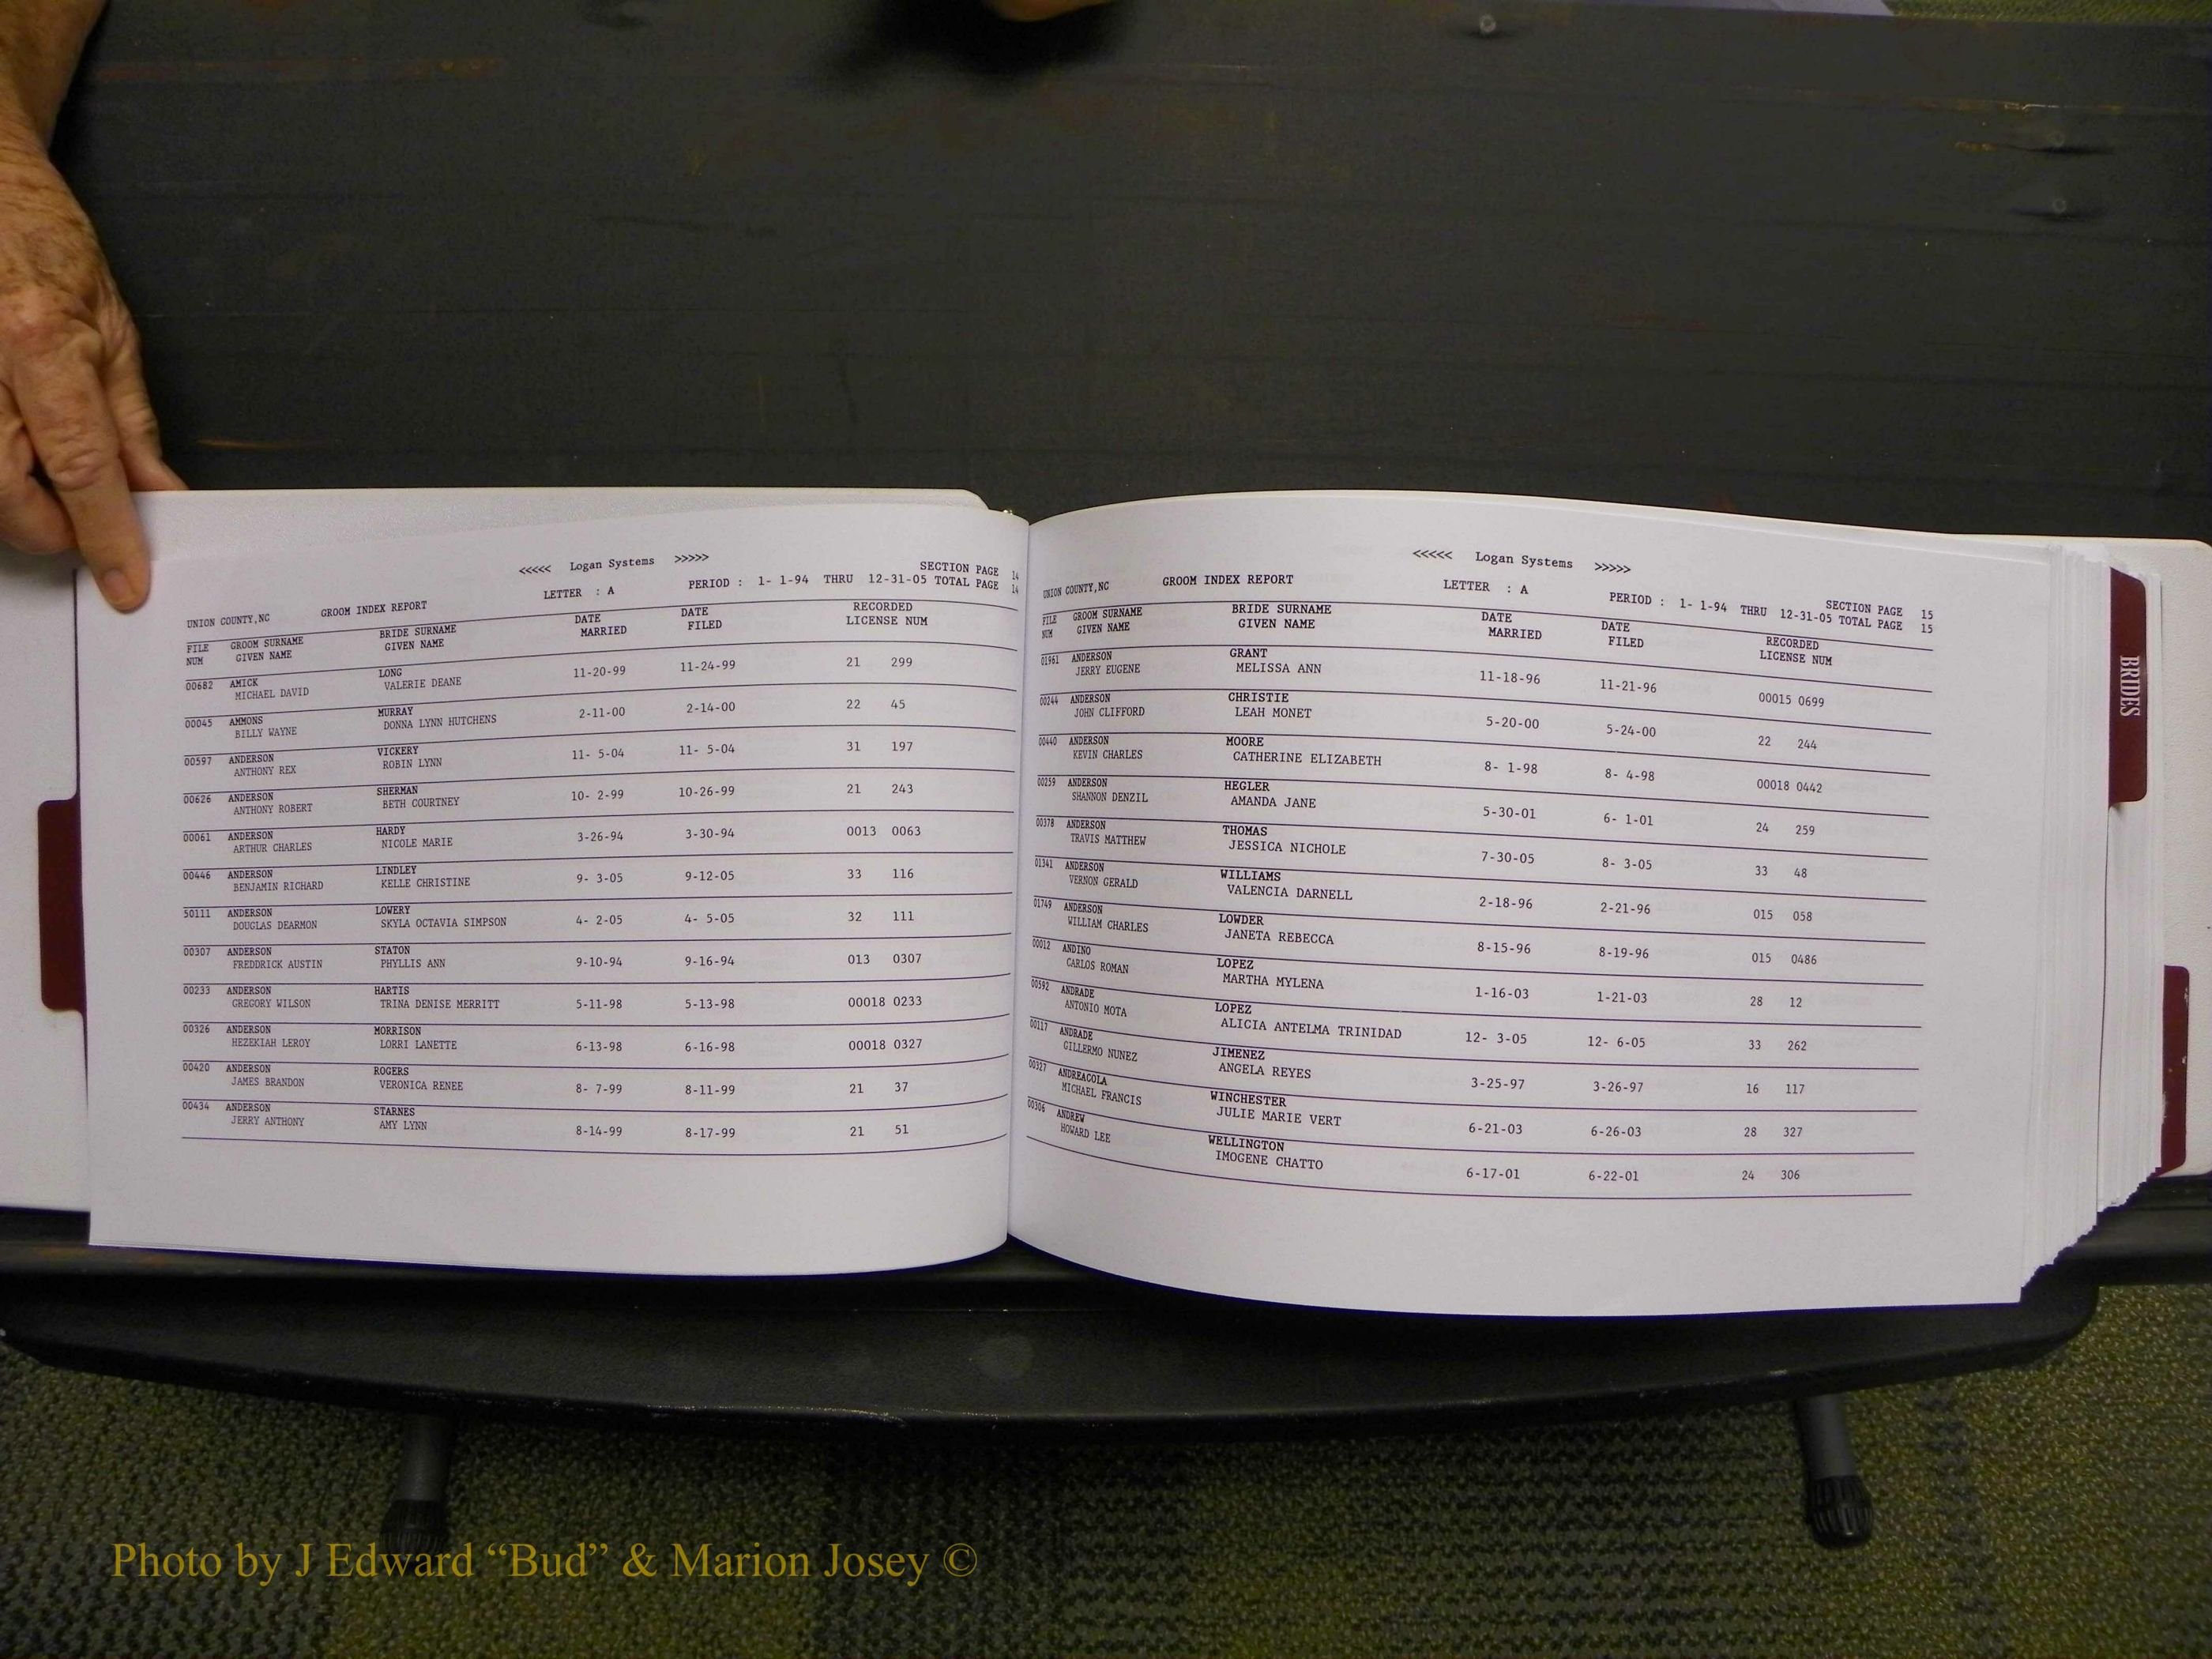 <<<<< Logan Systems >>>>>
SECTION PAGE 14
UNION COUNTY,NC GROOM INDEX REPORT LETTER : A PERIOD : 1- 1-94 THRU 12-31-05 TOTAL PAGE 14
FILE GROOM SURNAME BRIDE SURNAME DATE DATE RECORDED
NUM GIVEN NAME GIVEN NAME MARRIED FILED LICENSE NUM
00682 AMICK LONG 11-20-99 11-24-99 21 299
MICHAEL DAVID VALERIE DEANE
00045 AMMONS MURRAY 2-11-00 2-14-00 22 45
BILLY WAYNE DONNA LYNN HUTCHENS
00597 ANDERSON VICKERY 11- 5-04 11- 5-04 31 197
ANTHONY REX ROBIN LYNN
00626 ANDERSON SHERMAN 10- 2-99 10-26-99 21 243
ANTHONY ROBERT BETH COURTNEY
00061 ANDERSON HARDY 3-26-94 3-30-94 0013 0063
ARTHUR CHARLES NICOLE MARIE
00446 ANDERSON LINDLEY 9- 3-05 9-12-05 33 116
BENJAMIN RICHARD KELLE CHRISTINE
50111 ANDERSON LOWERY 4- 2-05 4- 5-05 32 111
DOUGLAS DEARMON SKYLA OCTAVIA SIMPSON
00307 ANDERSON STATON 9-10-94 9-16-94 013 0307
FREDDRICK AUSTIN PHYLLIS ANN
00233 ANDERSON HARTIS 5-11-98 5-13-98 00018 0233
GREGORY WILSON TRINA DENISE MERRITT
00326 ANDERSON MORRISON 6-13-98 6-16-98 00018 0327
HEZEKIAH LEROY LORRI LANETTE
00420 ANDERSON ROGERS 8- 7-99 8-11-99 21 37
JAMES BRANDON VERONICA RENEE
00434 ANDERSON STARNES 8-14-99 8-17-99 21 51
JERRY ANTHONY AMY LYNN
<<<<< Logan Systems >>>>>
SECTION PAGE 15
UNION COUNTY,NC GROOM INDEX REPORT LETTER : A PERIOD : 1- 1-94 THRU 12-31-05 TOTAL PAGE 15
FILE GROOM SURNAME BRIDE SURNAME DATE DATE RECORDED
NUM GIVEN NAME GIVEN NAME MARRIED FILED LICENSE NUM
01961 ANDERSON GRANT 11-18-96 11-21-96 00015 0699
JERRY EUGENE MELISSA ANN
00244 ANDERSON CHRISTIE 5-20-00 5-24-00 22 244
JOHN CLIFFORD LEAH MONET
00440 ANDERSON MOORE 8- 1-98 8- 4-98 00018 0442
KEVIN CHARLES CATHERINE ELIZABETH
00259 ANDERSON HEGLER 5-30-01 6- 1-01 24 259
SHANNON DENZIL AMANDA JANE
00378 ANDERSON THOMAS 7-30-05 8- 3-05 33 48
TRAVIS MATTHEW JESSICA NICHOLE
01341 ANDERSON WILLIAMS 2-18-96 2-21-96 015 058
VERNON GERALD VALENCIA DARNELL
01749 ANDERSON LOWDER 8-15-96 8-19-96 015 0486
WILLIAM CHARLES JANETA REBECCA
00012 ANDINO LOPEZ 1-16-03 1-21-03 28 12
CARLOS ROMAN MARTHA MYLENA
00592 ANDRADE LOPEZ 12- 3-05 12- 6-05 33 262
ANTONIO MOTA ALICIA ANTELMA TRINIDAD
00117 ANDRADE JIMENEZ 3-25-97 3-26-97 16 117
GILLERMO NUNEZ ANGELA REYES
00327 ANDREACOLA WINCHESTER 6-21-03 6-26-03 28 327
MICHAEL FRANCIS JULIE MARIE VERT
00306 ANDREW WELLINGTON 6-17-01 6-22-01 24 306
HOWARD LEE IMOGENE CHATTO
BRIDES
Photo by J Edward “Bud” & Marion Josey ©